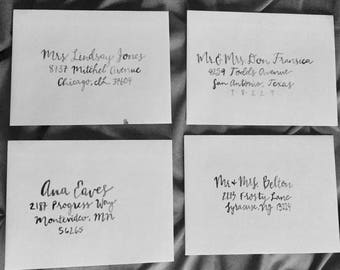 Mrs. Lindsay Jones
8737 Mitchel Avenue
Chicago, 
Mr. & Mrs. Don Fransica
Todds Avenue
San Antonio, Texas
Ana Eaves
2187 Progress Way
Montevideo, MN
56265
Mr. & Mrs. Belton
2213 Frosty Lane
Syracuse, NY